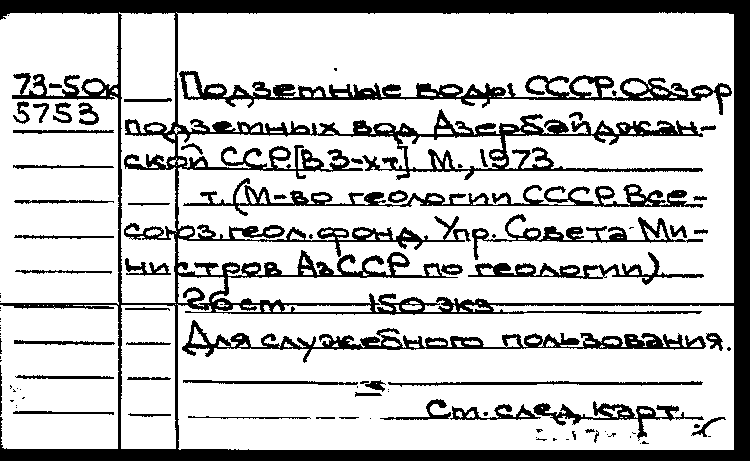 73-50к Подземные воды СССР. Обзор
5753 подземных вод Азербайджан-
ской ССР. [В 3-х т.] М., 1973.
т. (М-во геологии СССР. Все-
союз. геол. фонд. Упр. Совета Ми-
нистров АзССР по геологии).
26 см. 150 экз.
Для служебного пользования.
См. след. карт.